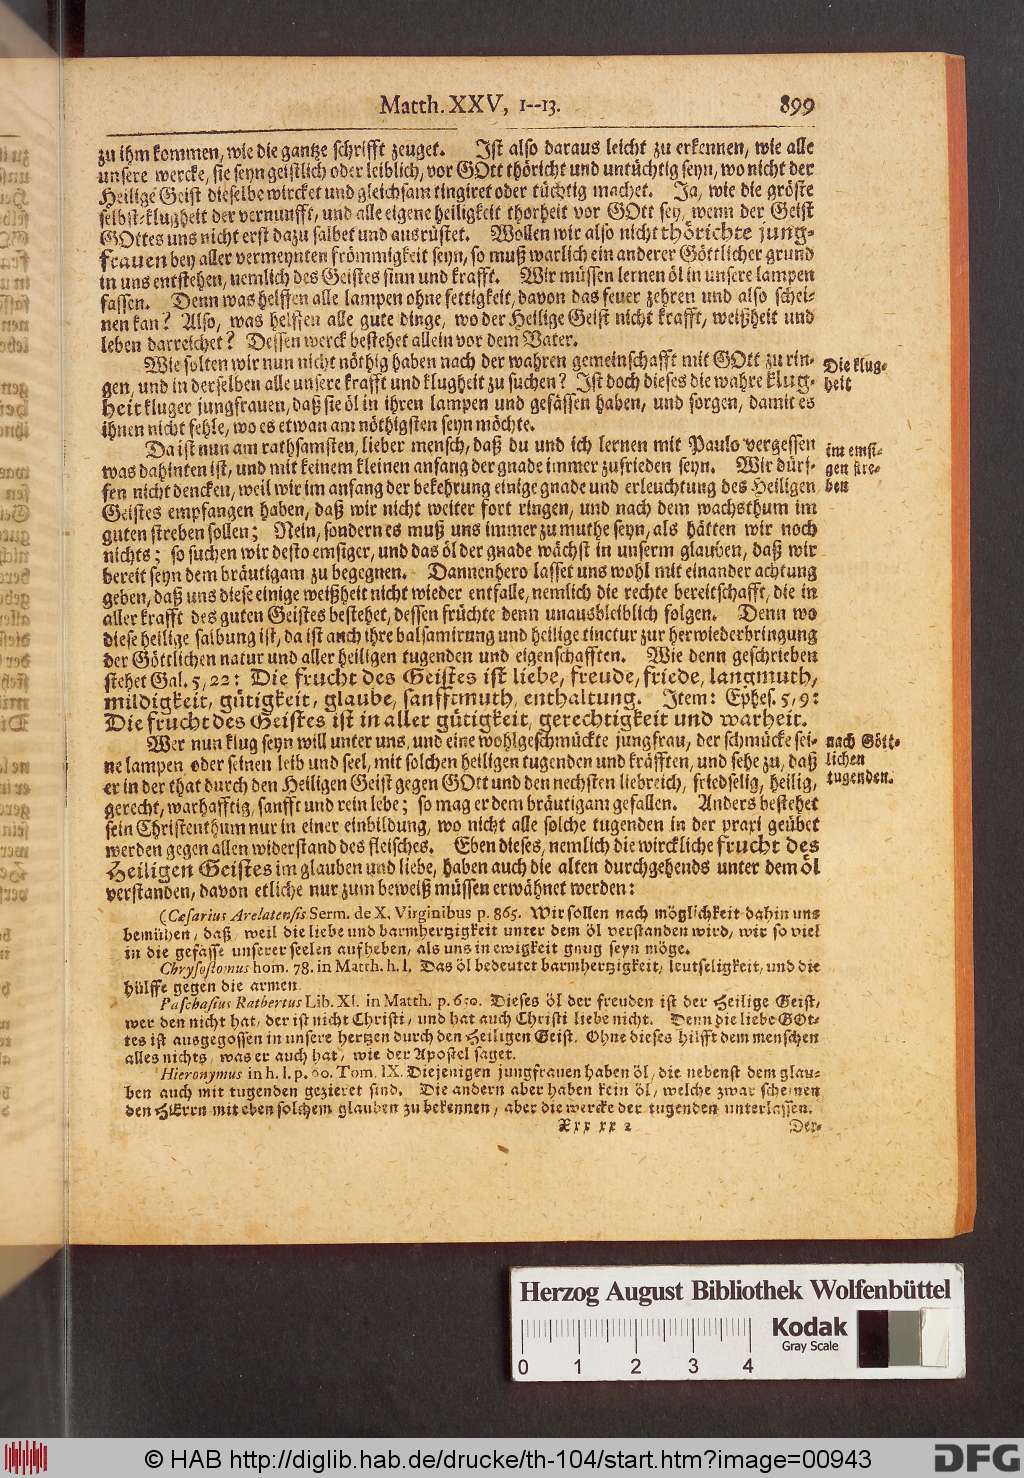 Matth. XXV, 1--13. 899
zu ihm kommen, wie die gantze schrifft zeuget. Ist also daraus leicht zu erkennen, wie alle
unsere wercke, sie seyn geistlich oder leiblich, vor GOtt thöricht und untüchtig seyn, wo nicht der
Heilige Geist dieselbe wircket und gleichsam tingiret oder tüchtig machet. Ja, wie die gröste
selbst-klugheit der vernunfft, und alle eigene heiligkeit thorheit vor GOtt sey, wenn der Geist
GOttes uns nicht erst dazu salbet und ausrüstet. Wollen wir also nicht thörichte jung-
frauen bey aller vermeynten frömmigkeit seyn, so muß warlich ein anderer Göttlicher grund
in uns entstehen, nemlich des Geistes sinn und krafft. Wir müssen lernen öl in unsere lampen
fassen. Denn was helffen alle lampen ohne fettigkeit, davon das feuer zehren und also schei-
nen kan? Also, was helffen alle gute dinge, wo der Heilige Geist nicht krafft, weißheit und
leben darreichet? Dessen werck bestehet allein vor dem Vater.
Wie solten wir nun nicht nöthig haben nach der wahren gemeinschafft mit GOtt zu rin-
gen, und in derselben alle unsere krafft und klugheit zu suchen? Ist doch dieses die wahre klug-
heit kluger jungfrauen, daß sie öl in ihren lampen und gefässen haben, und sorgen, damit es
ihnen nicht fehle, wo es etwan am nöthigsten seyn möchte.
Die klug-
heit
Da ist nun am rathsamsten, lieber mensch, daß du und ich lernen mit Paulo vergessen
was dahinten ist, und mit keinem kleinen anfang der gnade immer zufrieden seyn. Wir dürf-
fen nicht dencken, weil wir im anfang der bekehrung einige gnade und erleuchtung des Heiligen
Geistes empfangen haben, daß wir nicht weiter fort ringen, und nach dem wachsthum im
guten streben sollen; Nein, sondern es muß uns immer zu muthe seyn, als hätten wir noch
nichts; so suchen wir desto emsiger, und das öl der gnade wächst in unserm glauben, daß wir
bereit seyn dem bräutigam zu begegnen. Dannenhero lasset uns wohl mit einander achtung
geben, daß uns diese einige weißheit nicht wieder entfalle, nemlich die rechte bereitschafft, die in
aller krafft des guten Geistes bestehet, dessen früchte denn unausbleiblich folgen. Denn wo
diese heilige salbung ist, da ist auch ihre balsamirung und heilige tinctur zur herwiederbringung
der Göttlichen natur und aller heiligen tugenden und eigenschafften. Wie denn geschrieben
stehet Gal. 5, 22: Die frucht des Geistes ist liebe, freude, friede, langmuth,
mildigkeit, gütigkeit, glaube, sanfftmuth, enthaltung. Item: Ephes. 5, 9:
Die frucht des Geistes ist in aller gütigkeit, gerechtigkeit und warheit.
im emsi-
gen stre-
ben
Wer nun klug seyn will unter uns, und eine wohlgeschmückte jungfrau, der schmücke sei-
ne lampen oder seinen leib und seel, mit solchen heiligen tugenden und kräfften, und sehe zu, daß
er in der that durch den Heiligen Geist gegen GOtt und den nechsten liebreich, friedselig, heilig,
gerecht, warhafftig, sanfft und rein lebe; so mag er dem bräutigam gefallen. Anders bestehet
sein Christenthum nur in einer einbildung, wo nicht alle solche tugenden in der praxi geübet
werden gegen allen widerstand des fleisches. Eben dieses, nemlich die wirckliche frucht des
Heiligen Geistes im glauben und liebe, haben auch die alten durchgehends unter dem öl
verstanden, davon etliche nur zum beweiß müssen erwähnet werden:
nach Gött-
lichen
tugenden.
(Cæsarius Arelatensis Serm. de X. Virginibus p. 865. Wir sollen nach möglichkeit dahin uns
bemühen, daß, weil die liebe und barmhertzigkeit unter dem öl verstanden wird, wir so viel
in die gefässe unserer seelen aufheben, als uns in ewigkeit gnug seyn möge.
Chrysostomus hom. 78. in Matth. h. l. Das öl bedeutet barmhertzigkeit, leutseligkeit, und die
hülffe gegen die armen
Paschasius Ratbertus Lib. XI. in Matth. p. Dieses öl der freuden ist der Heilige Geist,
wer den nicht hat, der ist nicht Christi, und hat auch Christi liebe nicht. Denn die liebe GOt-
tes ist ausgegossen in unsere hertzen durch den Heiligen Geist. Ohne dieses hilfft dem menschen
alles nichts, was er auch hat, wie der Apostel saget.
Hieronymus in h. l. p. Tom. IX. Diejenigen jungfrauen haben öl, die nebenst dem glau-
ben auch mit tugenden gezieret sind. Die andern aber haben kein öl, welche zwar scheinen
den HErrn mit eben solchem glauben zu bekennen, aber die wercke der tugenden unterlassen.
Xxx xx 2 Der-
Herzog August Bibliothek Wolfenbüttel
Kodak
Gray Scale
0 1 2 3 4
© HAB http://diglib.hab.de/drucke/th-104/start.htm?image=00943
DFG